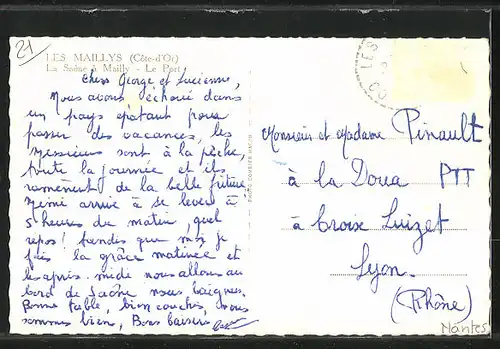 21
LES MAILLYS (Côte-d'Or)
La Saône à Mailly - Le Port
Chers George et Lucienne,
Nous avons échoué dans
un pays épatant pour
passer des vacances, les
messieurs sont à la pêche
toute la journée et ils
ramènent de la belle friture
Mémé arrive à se lever à
5 heures du matin, quel
repos! tandis que moi je
fais la grâce matinée et
les après-midi nous allons au
bord de Saône nous baigner.
Bonne table, bien couchés, nous
sommes bien, Bons baisers
LES
Monsieur et Madame Pinault
à la Doua PTT
à Croix Luizet
Lyon.
(Rhône)
Nantes